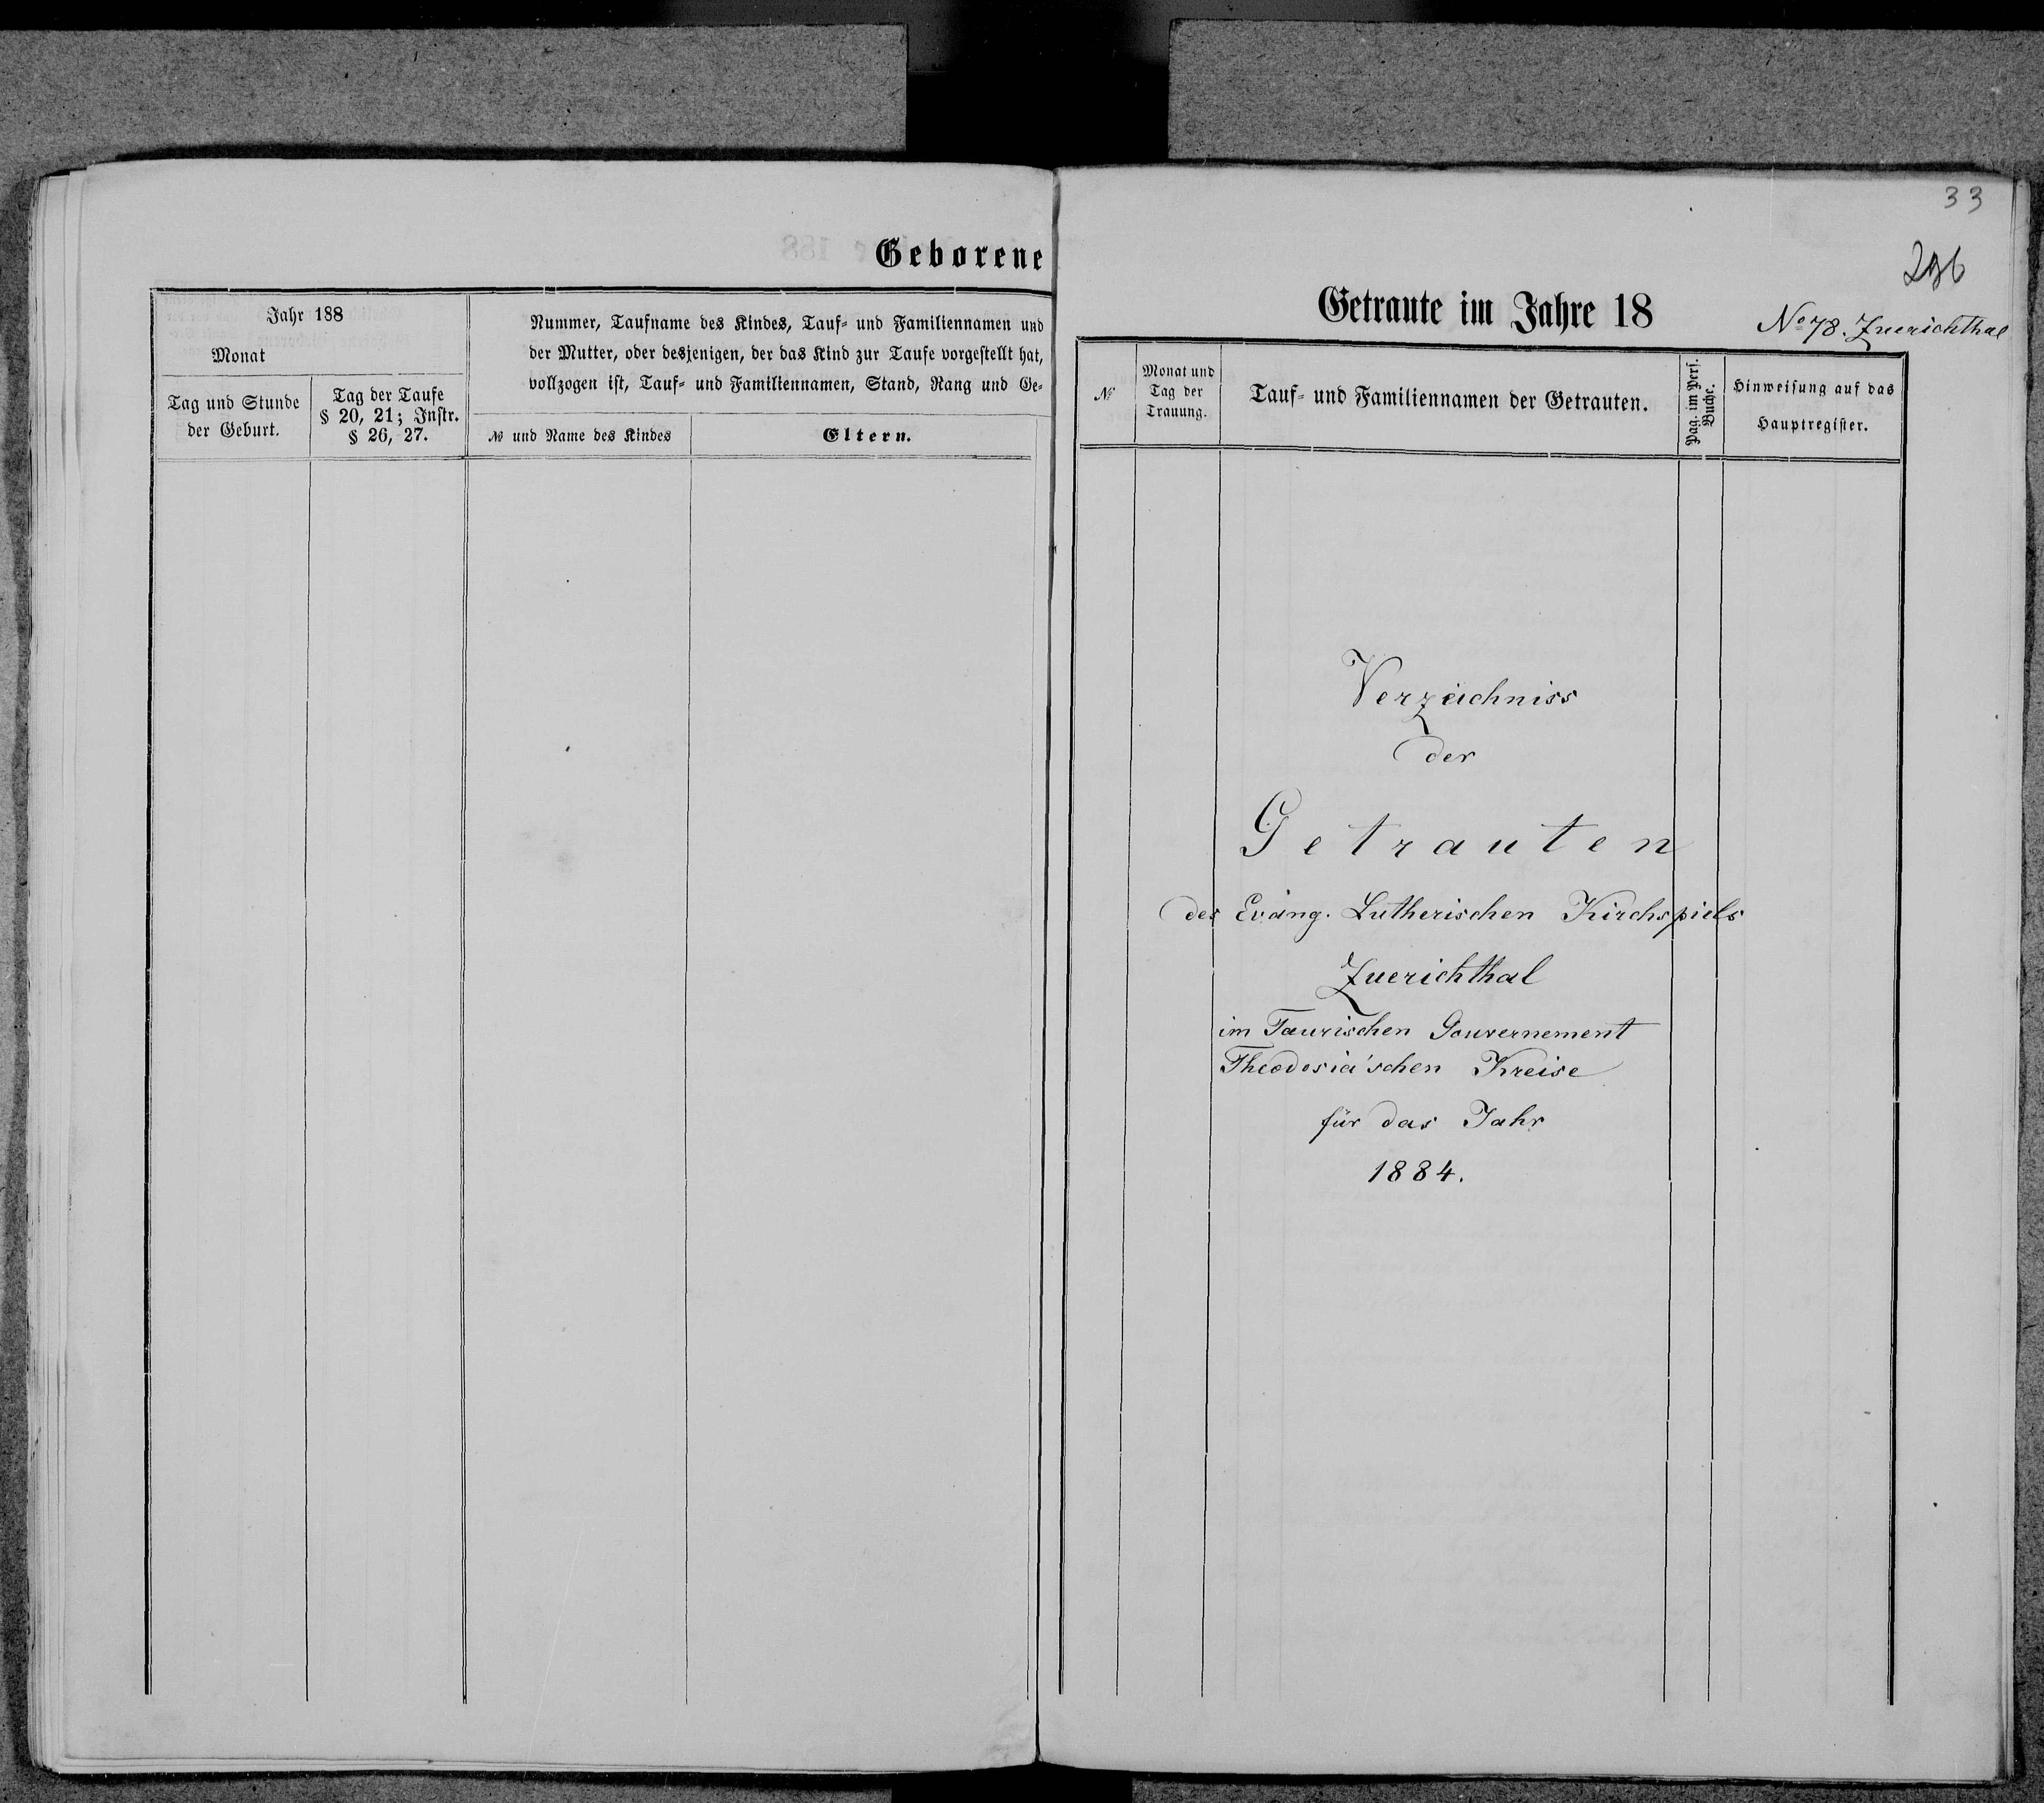 Geborene
Jahr 188
Monat
Tag und Stunde
der Geburt.
Tag der Taufe
§ 20, 21; Instr.
§ 26, 27.
Nummer, Taufname des Kindes, Tauf- und Familiennamen und
der Mutter, oder desjenigen, der das Kind zur Taufe vorgestellt hat,
vollzogen ist, Tauf- und Familiennamen, Stand, Rang und Ge-
№ und Name des Kindes
Eltern.
33
296
Getraute im Jahre 18
No 78. Zuerichthal
№
Monat und
Tag der
Trauung.
Tauf- und Familiennamen der Getrauten.
Pag. im Pers.
Buche.
Hinweisung auf das
Hauptregister.
Verzeichniss
der
Getrauten
des Evang. Lutherischen Kirchspiels
Zuerichthal
im Taurischen Gouvernement
Theodosia'schen Kreise
für das Jahr
1884.